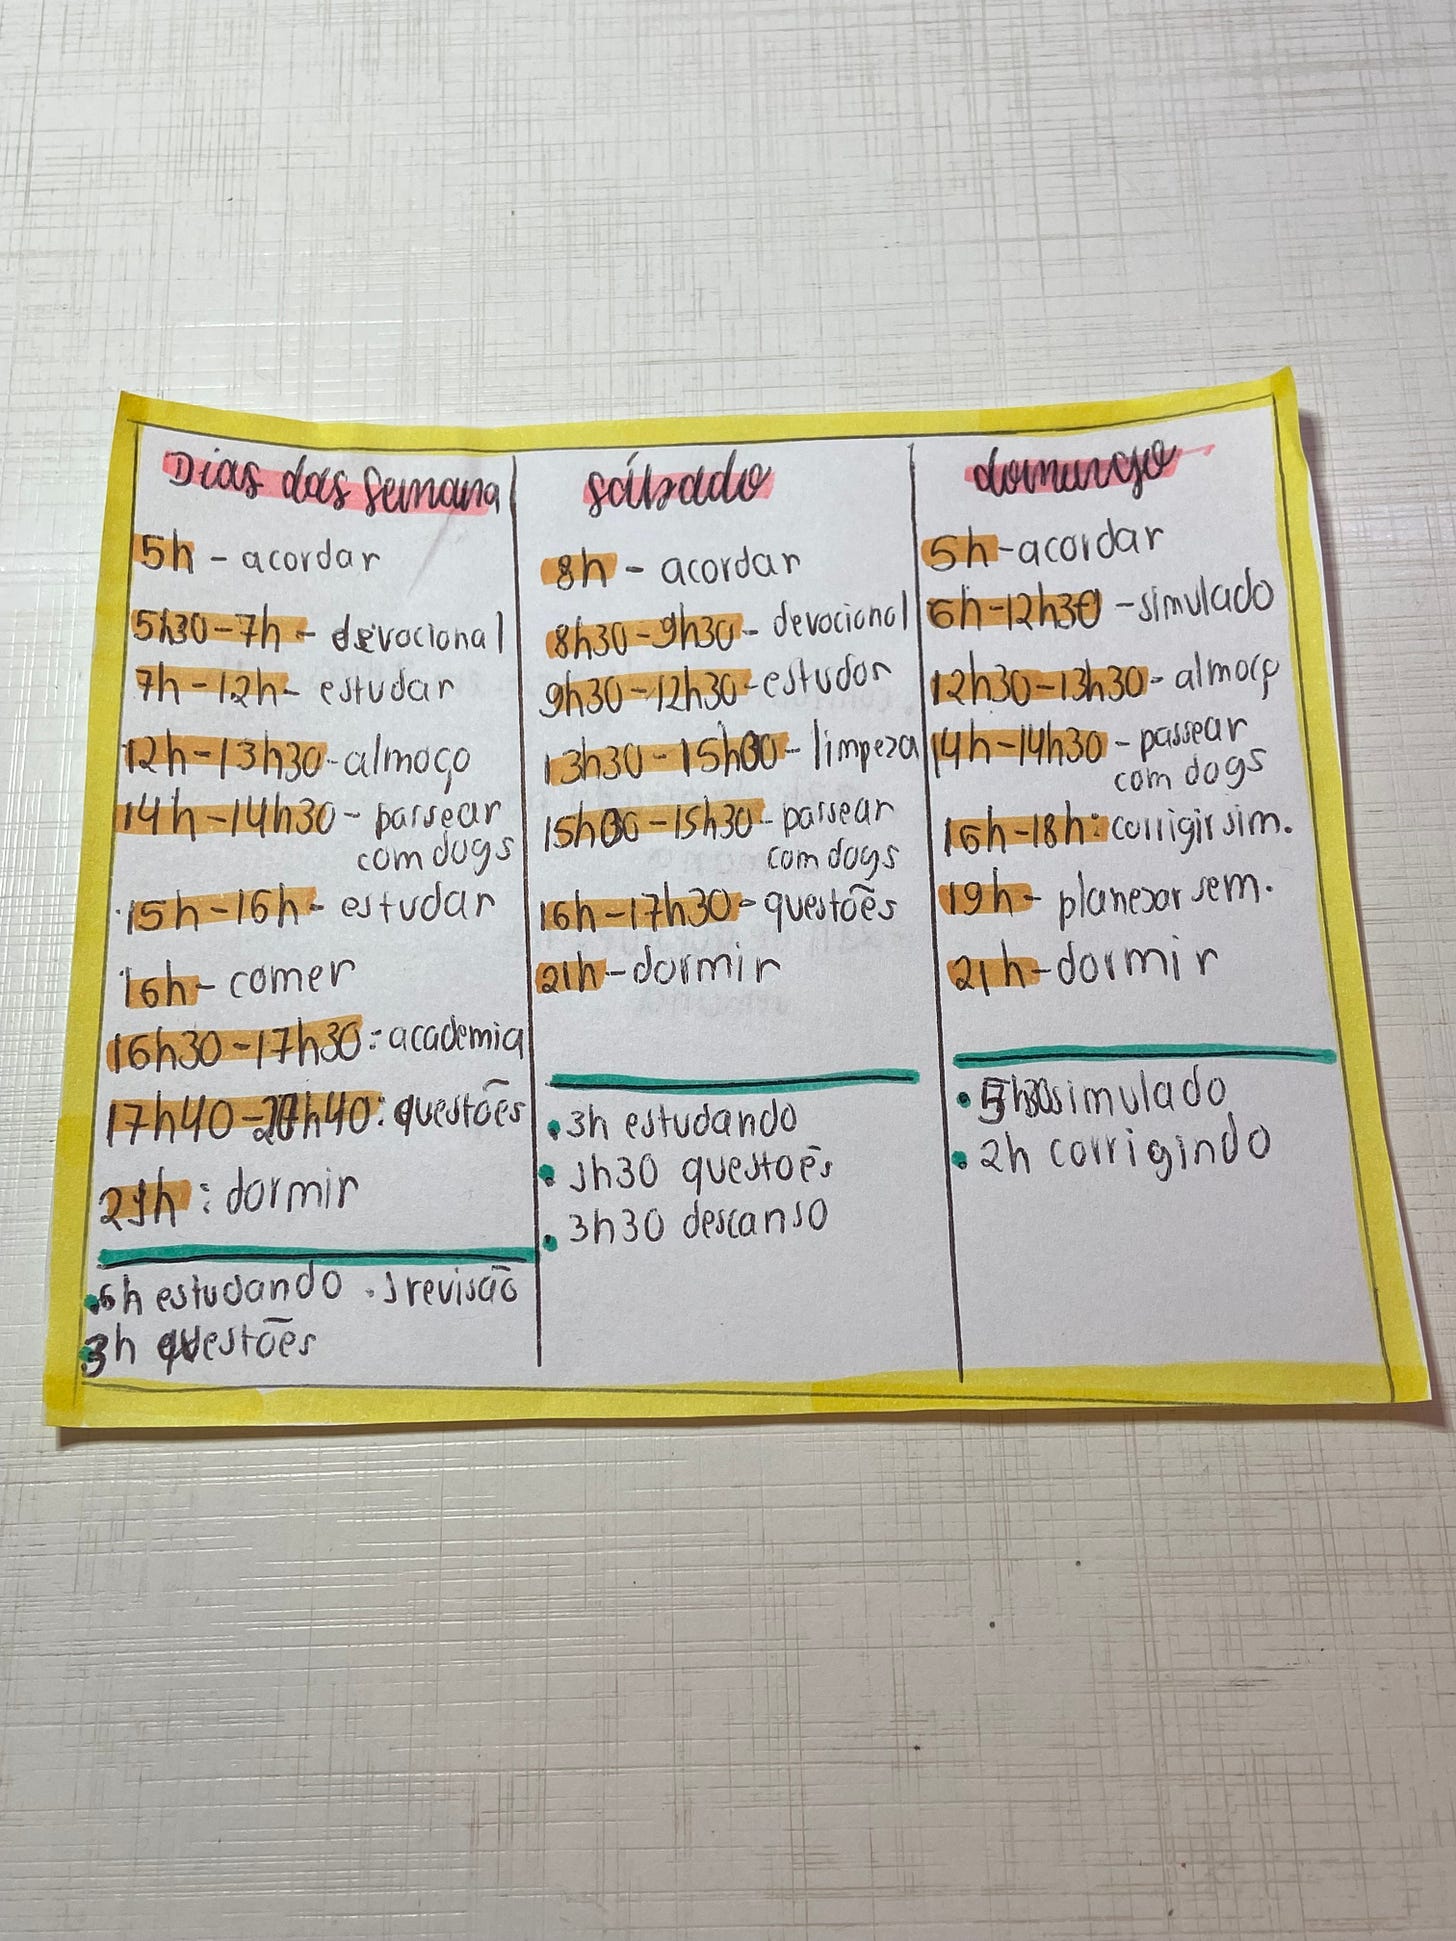 Dias das Semana
5h - acordar
5h30-7h - devocional
7h-12h - estudar
12h-13h30 - almoço
14h-14h30 - passear
com dogs
15h-16h - estudar
16h - comer
16h30-17h30: academia
17h40-20h40: questões
21h: dormir
6h estudando . 1 revisão
3h questões
sábado
8h - acordar
8h30-9h30 - devocional
9h30-12h30 - estudar
13h30-15h00 - limpeza
15h00-15h30 - passear
com dogs
16h-17h30 - questões
21h - dormir
3h estudando
1h30 questões
3h30 descanso
domingo
5h - acordar
6h-12h30 - simulado
12h30-13h30 - almoço
14h-14h30 - passear
com dogs
16h-18h: corrigir sim.
19h - planejar sem.
21h - dormir
simulado
2h corrigindo